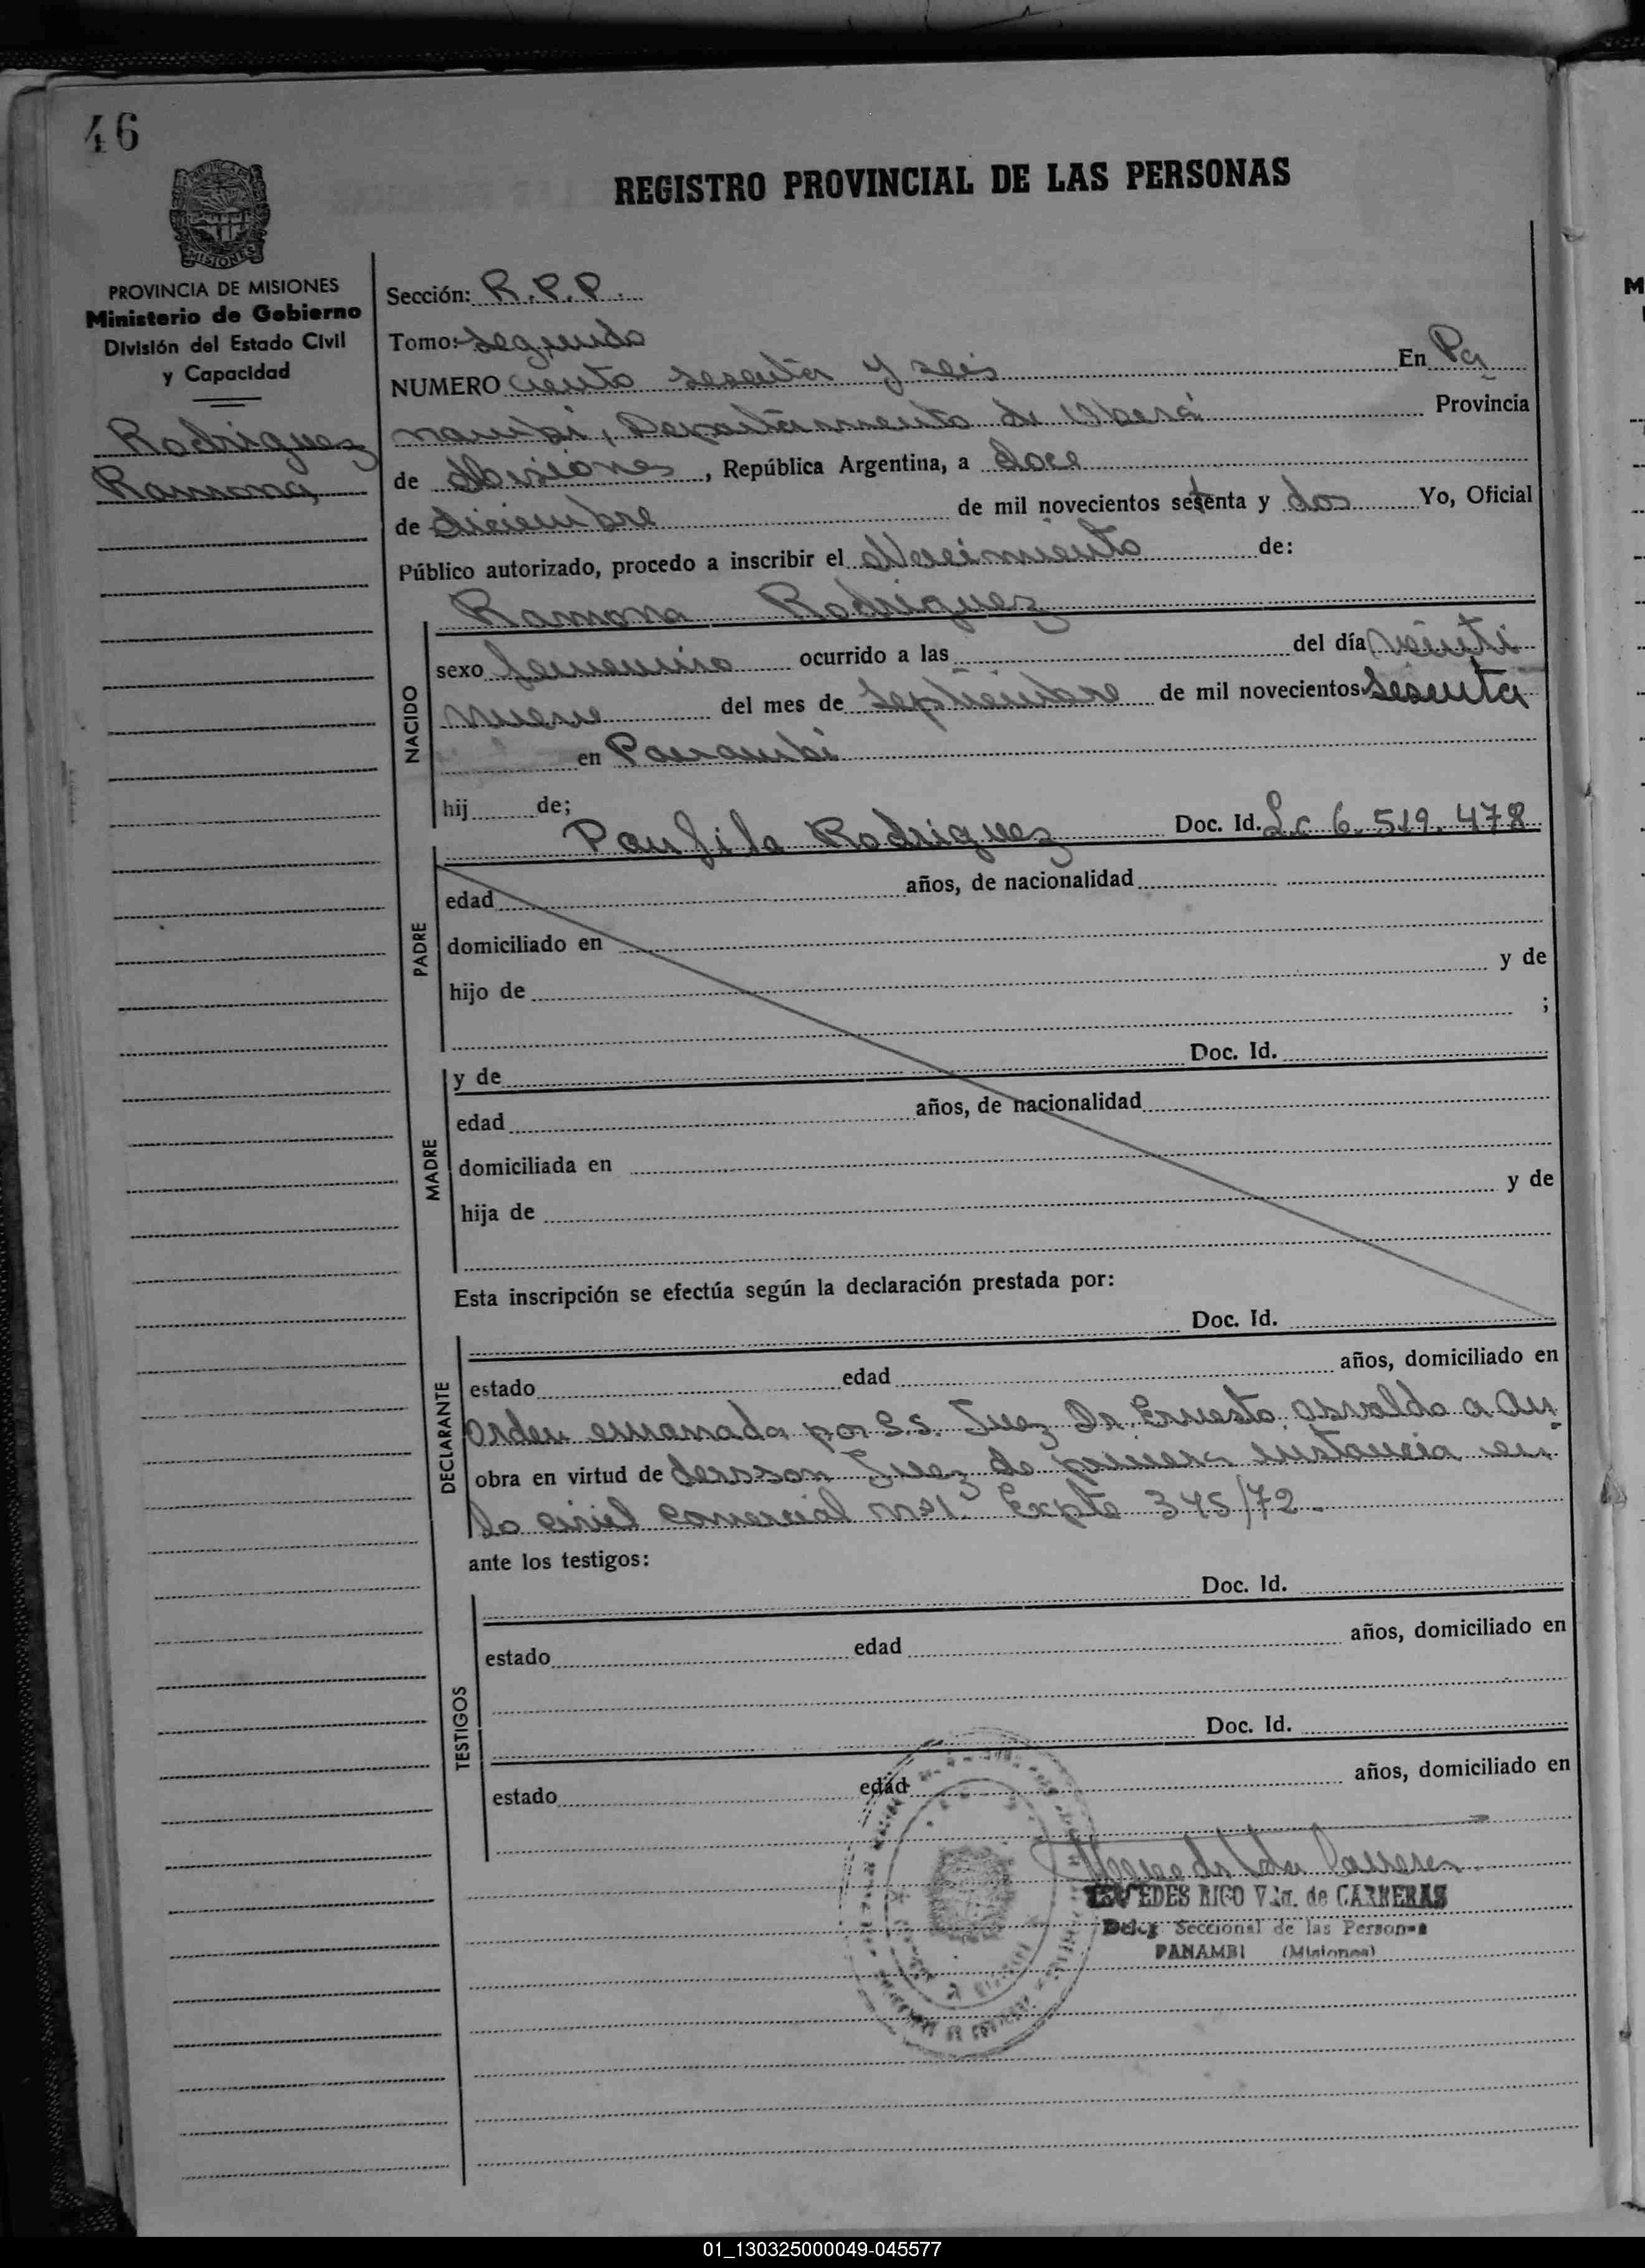 46
REGISTRO PROVINCIAL DE LAS PERSONAS
MISIONES
PROVINCIA DE MISIONES
Ministerio de Gobierno
División del Estado Civil
y Capacidad
Rodriguez
Ramona
Sección: R.P.P.
Tomo: Segundo
NUMERO ciento sesenta y seis En Pa
nambi, Departamento de Oberá Provincia
de Misiones, República Argentina, a doce
de diciembre de mil novecientos setenta y dos Yo, Oficial
Público autorizado, procedo a inscribir el Nacimiento de:
Ramona Rodriguez
NACIDO
sexo femenino ocurrido a las del día veinti
nueve del mes de septiembre de mil novecientos sesenta
en Panambi
hij de;
PADRE
Panfila Rodriguez Doc. Id. Lc 6.519.478
edad años, de nacionalidad
domiciliado en
hijo de y de
;
MADRE
y de Doc. Id.
edad años, de nacionalidad
domiciliada en
hija de y de
Esta inscripción se efectúa según la declaración prestada por:
DECLARANTE
Doc. Id.
estado edad años, domiciliado en
Orden emanada por S.S. Juez Dr. Ernesto Osvaldo a An
obra en virtud de dersson Juez de primera instancia en
lo civil comercial Nº1 Expte 345/72.
ante los testigos:
TESTIGOS
Doc. Id.
estado edad años, domiciliado en
Doc. Id.
estado edad años, domiciliado en
EDES RICO Vda. de CARRERAS
Deleg. Seccional de las Personas
PANAMBI (Misiones)
01_130325000049-045577